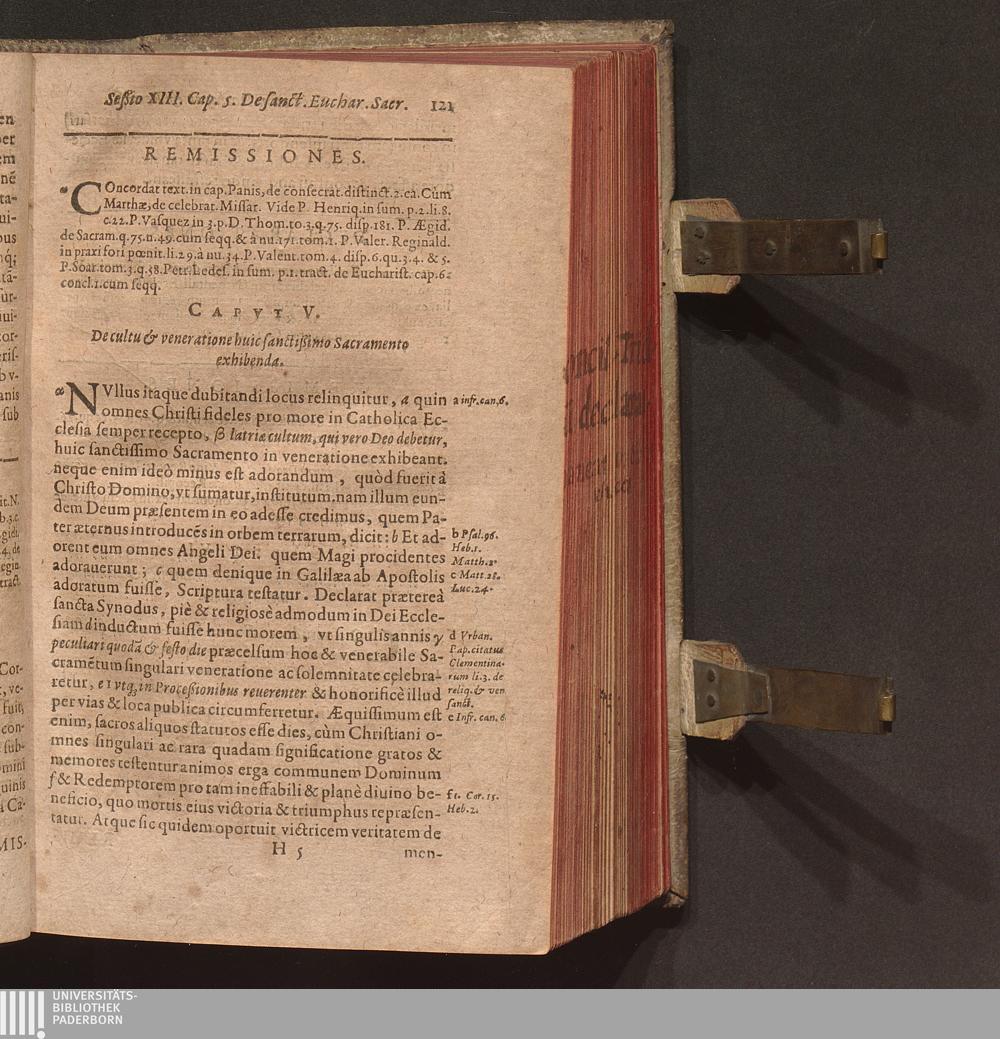 Seßio XIII. Cap. 5. De sanct. Euchar. Sacr. 121
REMISSIONES.
COncordat text. in cap. Panis, de consecrat. distinct. 2. ca. Cùm
Marthæ, de celebrat. Missar. Vide P. Henriq. in sum. p. 2. li. 8.
c. 22. P. Vasquez in 3. p. D. Thom. to. 3. q. 75. disp. 181. P. Ægid.
de Sacram. q. 75. n. 49. cum seqq. & à nu. 171. tom. 1. P. Valer. Reginald.
in praxi fori pœnit. li. 29. à nu. 34. P. Valent. tom. 4. disp. 6. qu. 3. 4. & 5.
P. Soar. tom. 3. q. 38. Petr. Ledes. in sum. p. 1. tract. de Eucharist. cap. 6.
concl. 1. cum seqq.
CAPVT V.
De cultu & veneratione huic sanctißimo Sacramento
exhibenda.
α NVllus itaque dubitandi locus relinquitur, a quin
omnes Christi fideles pro more in Catholica Ec-
clesia semper recepto, β latriæ cultum, qui vero Deo debetur,
huic sanctissimo Sacramento in veneratione exhibeant.
neque enim ideò minus est adorandum, quòd fuerit à
Christo Domino, vt sumatur, institutum. nam illum eun-
dem Deum præsentem in eo adesse credimus, quem Pa-
ter æternus introducẽs in orbem terrarum, dicit: b Et ad-
orent eum omnes Angeli Dei. quem Magi procidentes
adorauerunt; c quem denique in Galilæa ab Apostolis
adoratum fuisse, Scriptura testatur. Declarat prætereà
sancta Synodus, piè & religiosè admodum in Dei Eccle-
siam d inductum fuisse hunc morem, vt singulis annis γ
peculiari quodã & festo die præcelsum hoc & venerabile Sa-
cramẽtum singulari veneratione ac solemnitate celebra-
retur, e vtq; in Proceßionibus reuerenter & honorificè illud
per vias & loca publica circumferretur. Æquissimum est
enim, sacros aliquos statutos esse dies, cùm Christiani o-
mnes singulari ac rara quadam significatione gratos &
memores testentur animos erga communem Dominum
f & Redemptorem pro tam ineffabili & planè diuino be-
neficio, quo mortis eius victoria & triumphus repræsen-
tatur. Atque sic quidem oportuit victricem veritatem de
H 5 men-
a infr. can. 6.
b Psal. 96.
Heb. 1.
Matth. 2.
c Matt. 28.
Luc. 24.
d Vrban.
Pap. citatus
Clementina-
rum li. 3. de
reliq. & ven
sanct.
e Infr. can. 6
f 1. Cor. 15.
Heb. 2.
UNIVERSITÄTS-
BIBLIOTHEK
PADERBORN